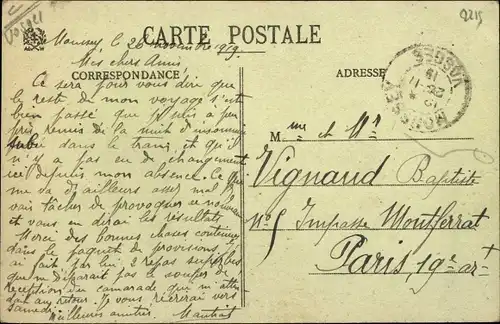 Vosges
2215
CARTE POSTALE
Moussey, le 26 novembre 1919
Mes chers Amis,
CORRESPONDANCE
ADRESSE
Ce sera pour vous dire que
le reste de mon voyage s'est
bien passé que je suis à peu
près remis de la nuit d'insomnie
subie dans le train, et qu'il
n'y a pas eu de changement
ici depuis mon absence. Ce que
me va d'ailleurs assez mal. Je
vais tâcher de provoquer ce nouveau
et vous en dirai les résultats.
Merci des bonnes choses contenues
dans le paquet de provisions, j'y
ai fait par lui 2 repas superbes
que m'a préparait pas le souper de
réception du camarade qui m'atten-
dait au retour. Je vous récrirai vers
Samedi
Meilleures amitiés.
MOUSSEY
26-11
19
VOSGES
Mme et Mr
Vignaud Baptiste
No 5 Impasse Montferrat
Paris 19e arrt